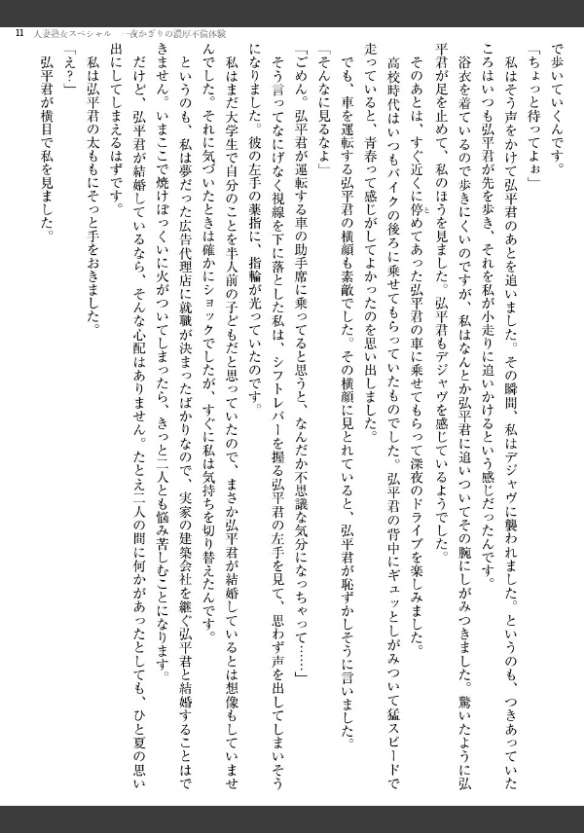 11 人妻熟女スペシャル 一夜かぎりの濃厚不倫体験
で歩いていくんです。
「ちょっと待ってよぉ」
私はそう声をかけて弘平君のあとを追いました。その瞬間、私はデジャヴに襲われました。というのも、つきあっていた
ころはいつも弘平君が先を歩き、それを私が小走りに追いかけるという感じだったんです。
浴衣を着ているので歩きにくいのですが、私はなんとか弘平君に追いついてその腕にしがみつきました。驚いたように弘
平君が足を止めて、私のほうを見ました。弘平君もデジャヴを感じているようでした。
そのあとは、すぐ近くに停めてあった弘平君の車に乗せてもらって深夜のドライブを楽しみました。
高校時代はいつもバイクの後ろに乗せてもらっていたものでした。弘平君の背中にギュッとしがみついて猛スピードで
走っていると、青春って感じがしてよかったのを思い出しました。
でも、車を運転する弘平君の横顔も素敵でした。その横顔に見とれていると、弘平君が恥ずかしそうに言いました。
「そんなに見るなよ」
「ごめん。弘平君が運転する車の助手席に乗ってると思うと、なんだか不思議な気分になっちゃって……」
そう言ってなにげなく視線を下に落とした私は、シフトレバーを握る弘平君の左手を見て、思わず声を出してしまいそう
になりました。彼の左手の薬指に、指輪が光っていたのです。
私はまだ大学生で自分のことを半人前の子どもだと思っていたので、まさか弘平君が結婚しているとは想像もしていませ
んでした。それに気づいたときは確かにショックでしたが、すぐに私は気持ちを切り替えたんです。
というのも、私は夢だった広告代理店に就職が決まったばかりなので、実家の建築会社を継ぐ弘平君と結婚することはで
きません。いまここで焼けぼっくいに火がついてしまったら、きっと二人とも悩み苦しむことになります。
だけど、弘平君が結婚しているなら、そんな心配はありません。たとえ二人の間に何かがあったとしても、ひと夏の思い
出にしてしまえるはずです。
私は弘平君の太ももにそっと手をおきました。
「え？」
弘平君が横目で私を見ました。